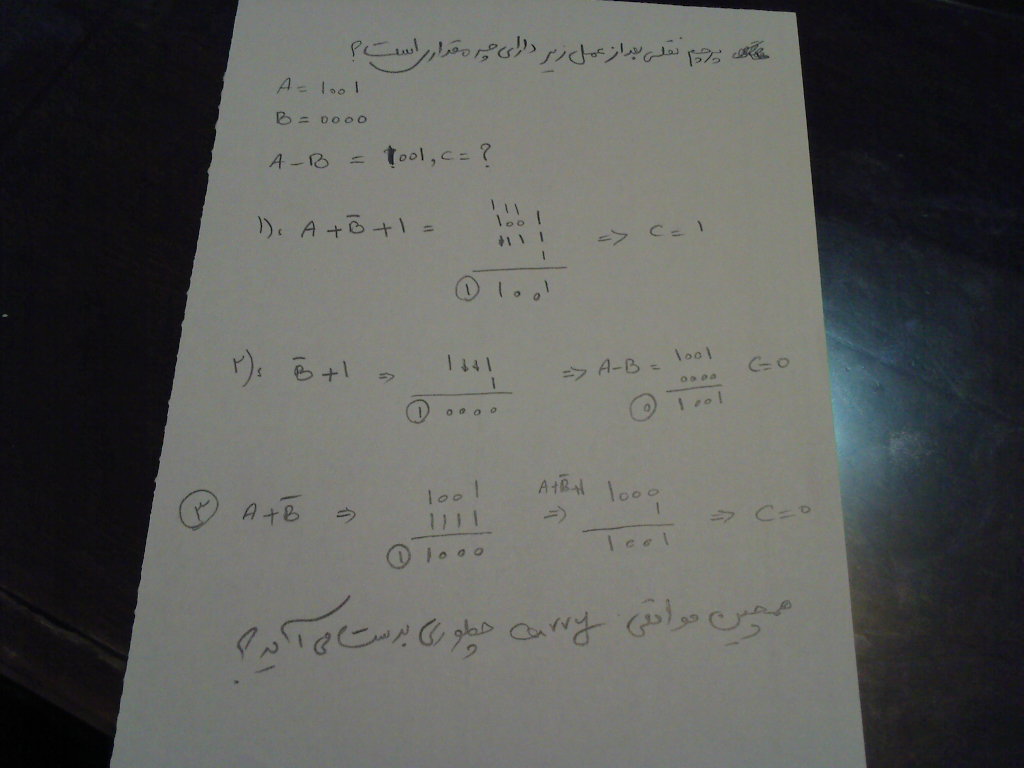 پرچم نقلی بعد از عمل زیر دارای چه مقداری است؟
A = 1001
B = 0000
A - B = 1001, C = ?
۱): A + B̅ + 1 =
111
1001
1111
1
① 1001
=> C = 1
۲): B̅ + 1 =>
1111
1
① 0000
=> A-B =
1001
0000
⓪ 1001
C=0
③ A + B̅ =>
1001
1111
① 1000
A+B̅+1
=>
1000
1
1001
=> C=0
همچین مواقعی carry چطوری بدست می آید؟